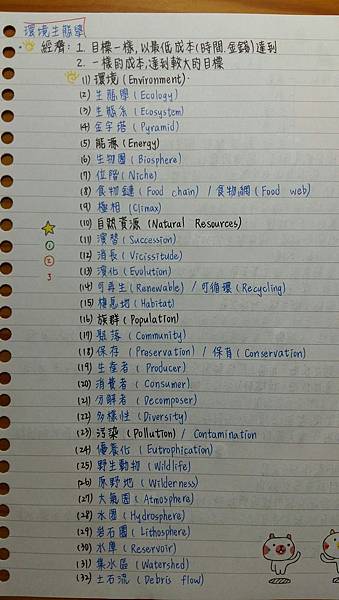 環境生態學
經濟: 1. 目標一樣,以最低成本(時間.金錢)達到
2. 一樣的成本,達到較大的目標
(1) 環境 (Environment).
(2) 生態學 (Ecology)
(3) 生態系 (Ecosystem)
(4) 金字塔 (Pyramid)
(5) 能源 (Energy)
(6) 生物圈 (Biosphere)
(7) 位階 (Niche)
(8) 食物鏈 (Food chain) / 食物網 (Food web)
(9) 極相 (Climax)
(10) 自然資源 (Natural Resources)
(11) 演替 (Succession)
(12) 消長 (Vicissitude)
(13) 演化 (Evolution)
(14) 可再生 (Renewable) / 可循環 (Recycling)
(15) 棲息地 (Habitat)
(16) 族群 (Population)
(17) 聚落 (Community)
(18) 保存 (Preservation) / 保育 (Conservation)
(19) 生產者 (Producer)
(20) 消費者 (Consumer)
(21) 分解者 (Decomposer)
(22) 多樣性 (Diversity)
(23) 污染 (Pollution) / Contamination
(24) 優養化 (Eutrophication)
(25) 野生動物 (Wildlife)
(26) 原野地 (Wilderness)
(27) 大氣圈 (Atmosphere)
(28) 水圈 (Hydrosphere)
(29) 岩石圈 (Lithosphere)
(30) 水庫 (Reservoir)
(31) 集水區 (Watershed)
(32) 土石流 (Debris flow)
1
2
3